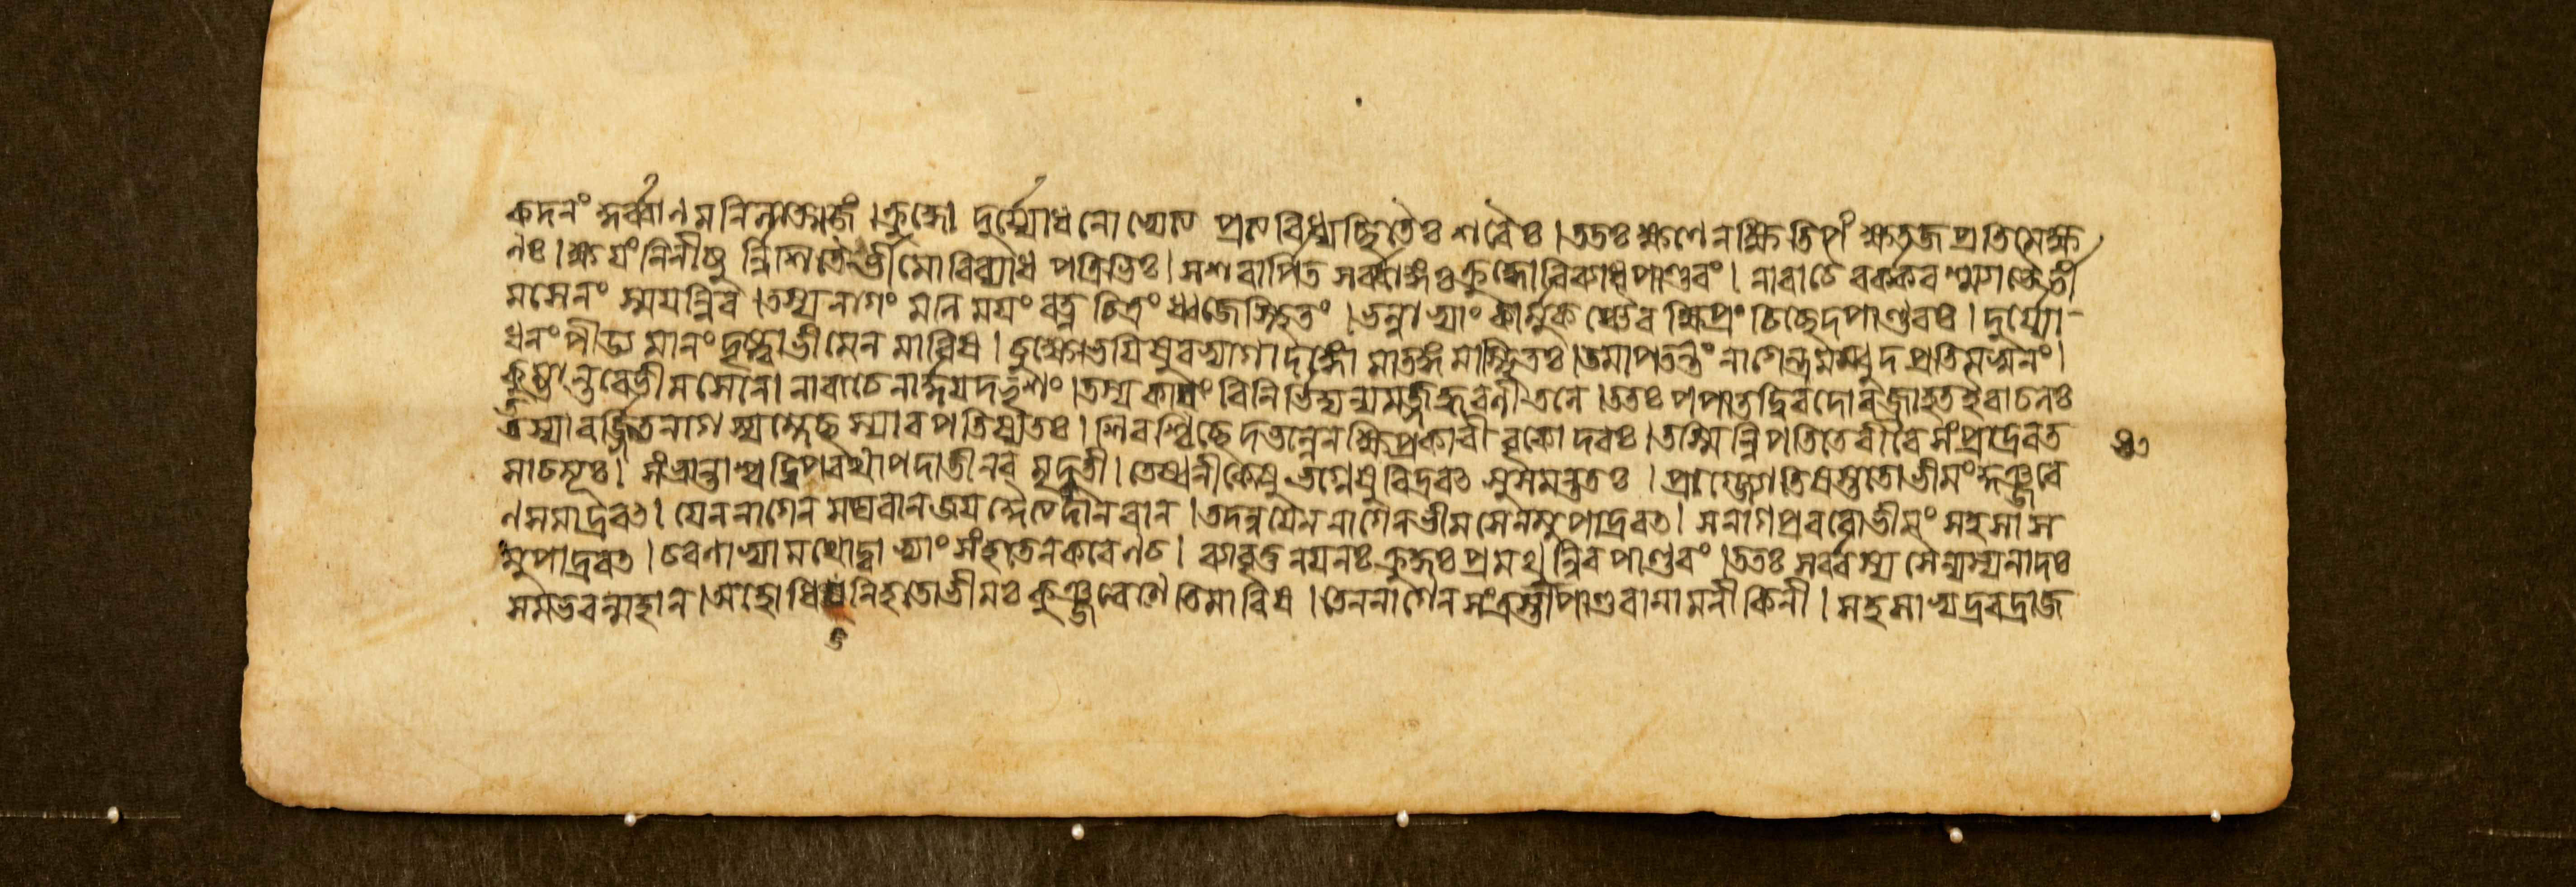 কদনং সর্ব্ববাণমনিলাত্মজং।ক্রুদ্ধো দুর্য্যোধনোভ্যেত্য প্রত্যবিধ্যচ্ছিতৈঃ শরৈঃ।ততঃ ক্ষণেন ক্ষিতিপং ক্ষতজপ্রতিমেক্ষ
ণঃ।ক্ষয়ং নিনীষু র্ন্নিশিতৈর্ভীমো বিব্যাধ পত্রিভিঃ।সশরার্পিত সর্ব্বাঙ্গঃক্রুদ্ধোবিব্যাধ পাণ্ডবং। নারাচৈ রর্ককর শ্মগাভৈর্ভী
মসেনং স্ময়ন্নিব।তস্য নাগং মনিময়ং রত্নচিত্রং ধ্বজেস্থিতং।ভল্লাভ্যাং কার্মুকঞ্চৈব ক্ষিপ্রং চিচ্ছেদপাণ্ডবঃ। দুর্য্যো-
ধনং পীড্যমানং দৃষ্ট্বাভীমেন মারিষ। চুক্ষোভয়িষুরভ্যাগাদঙ্গো মাতঙ্গ মাস্থিতঃ।তমাপতন্তং নাগেন্দ্রমম্বুদপ্রতিমস্বনং।
কুম্ভান্তরেভীমসেনো নারাচেনার্দ্দয়দভৃশং।তস্য কায়ং বিনির্ভিদ্য ন্যমজ্জদ্ধরণীতলে।ততঃ পপাতদ্বিরদোবজ্রাহতইবাচলঃ
তস্যাবর্জ্জিতনাগস্য ম্লেচ্ছস্যাবপতিষ্যতঃ।শিরশ্চিচ্ছেদভল্লেন ক্ষিপ্রকারীবৃকোদরঃ।তস্মিন্নিপতিতেবীরে সংপ্রাদ্রবত
সাচমূঃ। সংভ্রান্তাশ্বদ্বিপরথাপদাতীনব মৃদ্নতী।তেষ্বনীকেষু ভগ্নেষু বিদ্রবৎ সুসমন্ততঃ।প্রাগ্জ্যোতিষস্ততোভীমং কুঞ্জরে
ণ সমাদ্রবৎ। যেননাগেন মঘবানজয় দ্দৈত্যদানবান।তদন্বয়েন নাগেনভীমসেনমুপাদ্রবৎ। সনাগপ্রবরোভীমং সহসা স
মুপাদ্রবত।চরণাভ্যামথোদ্বাভ্যাং সংহতেনকরেণচ। ব্যাবৃত্তনয়নঃক্রুদ্ধঃপ্রমথন্নিব পাণ্ডবং।ততঃ সর্ব্বস্য সৈন্যস্যনাদঃ
সমভবন্মহান।অহোধিগ্নিহতোভীমঃ কুঞ্জরেণেতিমারিষ।তেননাদেন সংত্রস্তাপাণ্ডবানামনীকিনী।সহসাভ্যদ্রবদ্রাজ